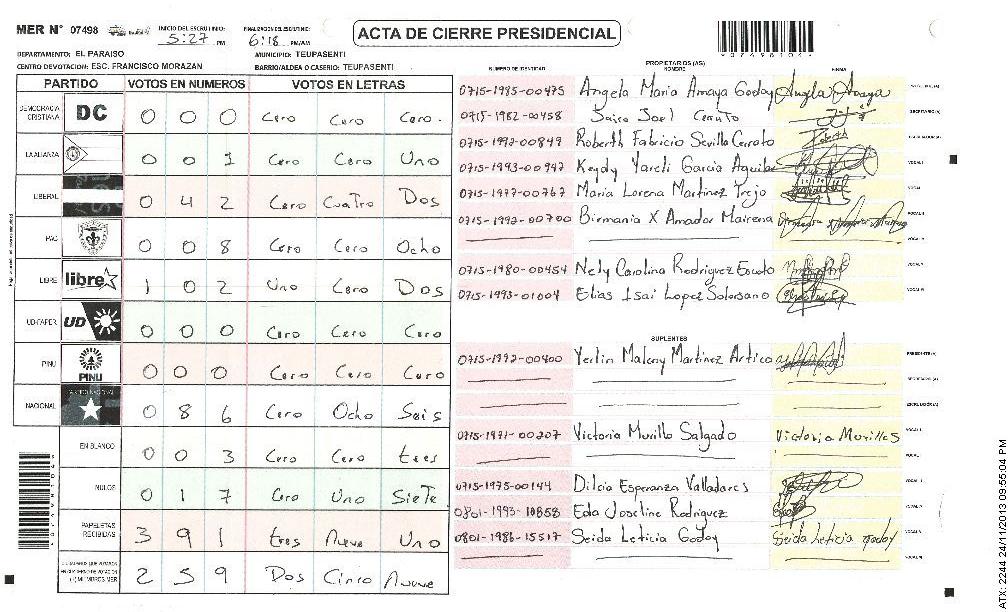 MER N° 07498 INICIO DEL ESCRUTINIO: 5:27 PM FINALIZACION DEL ESCRUTINIO: 6:18 PM/AM
ACTA DE CIERRE PRESIDENCIAL
DEPARTAMENTO: EL PARAISO MUNICIPIO: TEUPASENTI
CENTRO DE VOTACION: ESC. FRANCISCO MORAZAN BARRIO/ALDEA O CASERIO: TEUPASENTI
PARTIDO VOTOS EN NUMEROS VOTOS EN LETRAS
DEMOCRACIA CRISTIANA DC 0 0 0 Cero Cero Cero.
LA ALIANZA 0 0 1 Cero Cero Uno
LIBERAL 0 4 2 Cero Cuatro Dos
PAC 0 0 8 Cero Cero Ocho
LIBRE libre 1 0 2 Uno Cero Dos
UD-FAPER UD 0 0 0 Cero Cero Cero
PINU PINU 0 0 0 Cero Cero Cero
NACIONAL 0 8 6 Cero Ocho Seis
EN BLANCO 0 0 3 Cero Cero tres
NULOS 0 1 7 Cero Uno SieTe
PAPELETAS RECIBIDAS 3 9 1 tres Nueve Uno
2 5 9 Dos Cinco Nueve
NUMERO DE IDENTIDAD PROPIETARIOS (AS) NOMBRE FIRMA
0715-1985-00475 Angela Maria Amaya Godoy Angela Amaya
0715-1982-00458 Jairo Joel Cerrato SECRETARIO (A)
0715-1992-00849 Roberth Fabricio Sevilla Cerrato Roberth ESCRUTADOR (A)
0715-1993-00947 Keydy Yareli Garcia Aguilar VOCAL I
0715-1977-00767 Maria Lorena Martinez Trejo
0715-1992-00700 Birmania X Amador Mairena
0715-1980-00454 Nely Carolina Rodriguez Escoto
0715-1993-01004 Elias Isai Lopez Solorsano
SUPLENTES
0715-1992-00400 Yerlin Maleny Martinez Artica PRESIDENTE (A)
SECRETARIO (A)
ESCRUTADOR (A)
0715-1971-00207 Victoria Murillo Salgado Victoria Murillo S
0715-1975-00144 Dilcia Esperanza Valladares
0801-1993-10858 Eda Joseline Rodriguez
0801-1986-15517 Seida Leticia Godoy Seida Leticia Godoy
ATX: 2244 24/11/2013 09:55:04 PM